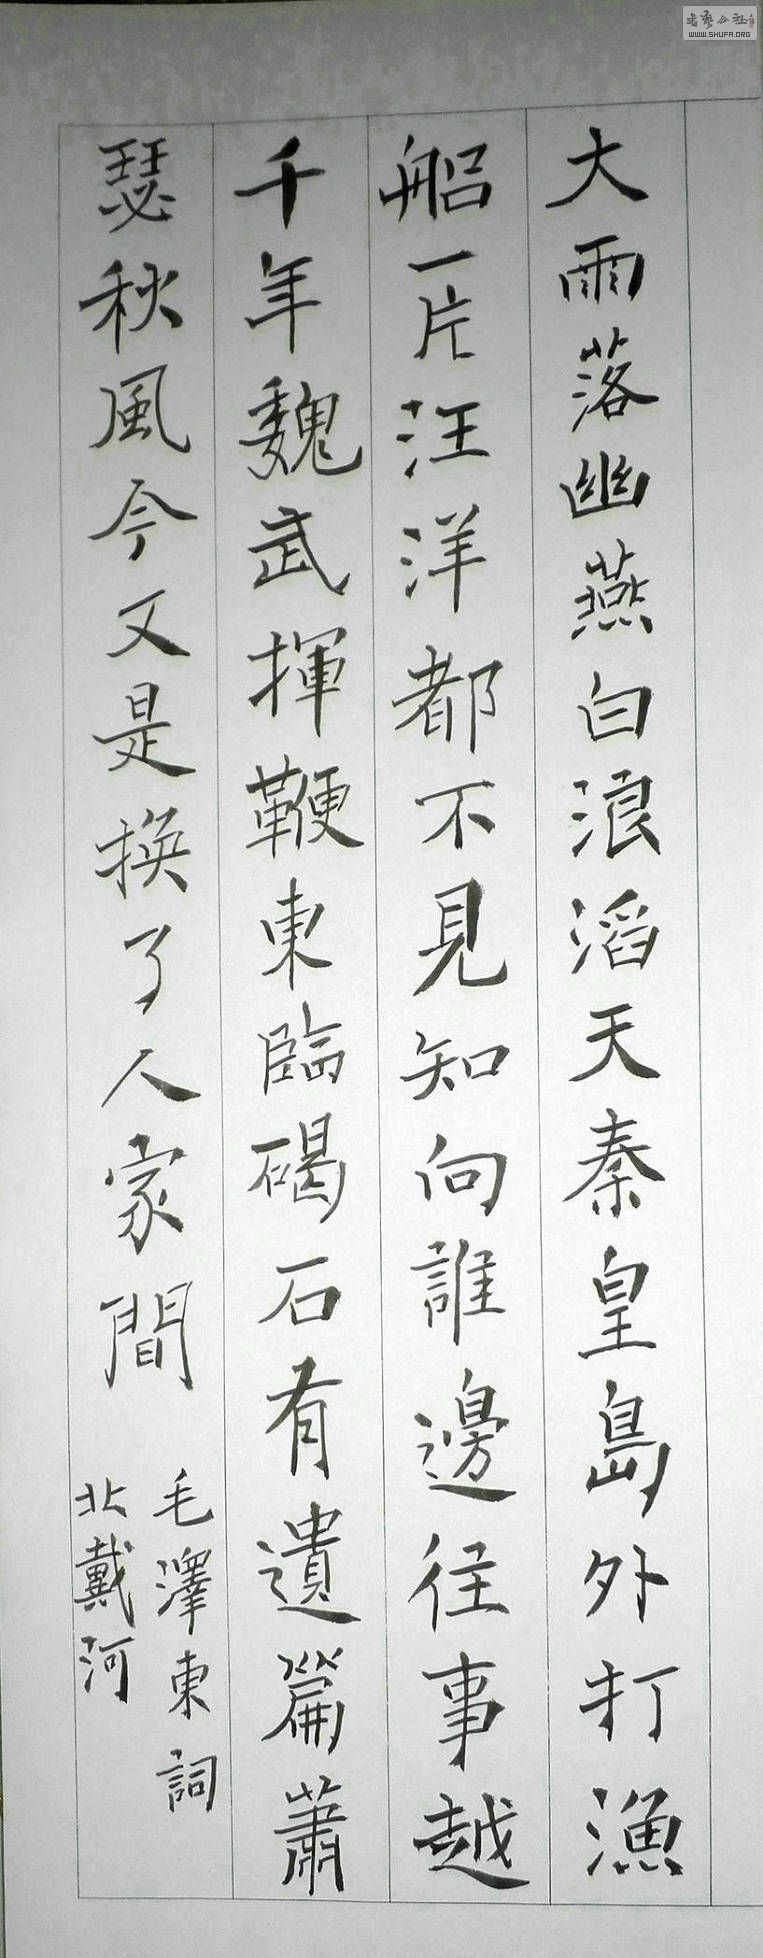 大雨落幽燕白浪滔天秦皇島外打漁
船一片汪洋都不見知向誰邊往事越
千年魏武揮鞭東臨碣石有遺篇蕭
瑟秋風今又是換了人家間
毛澤東詞
北戴河
WWW.SHUFA.ORG